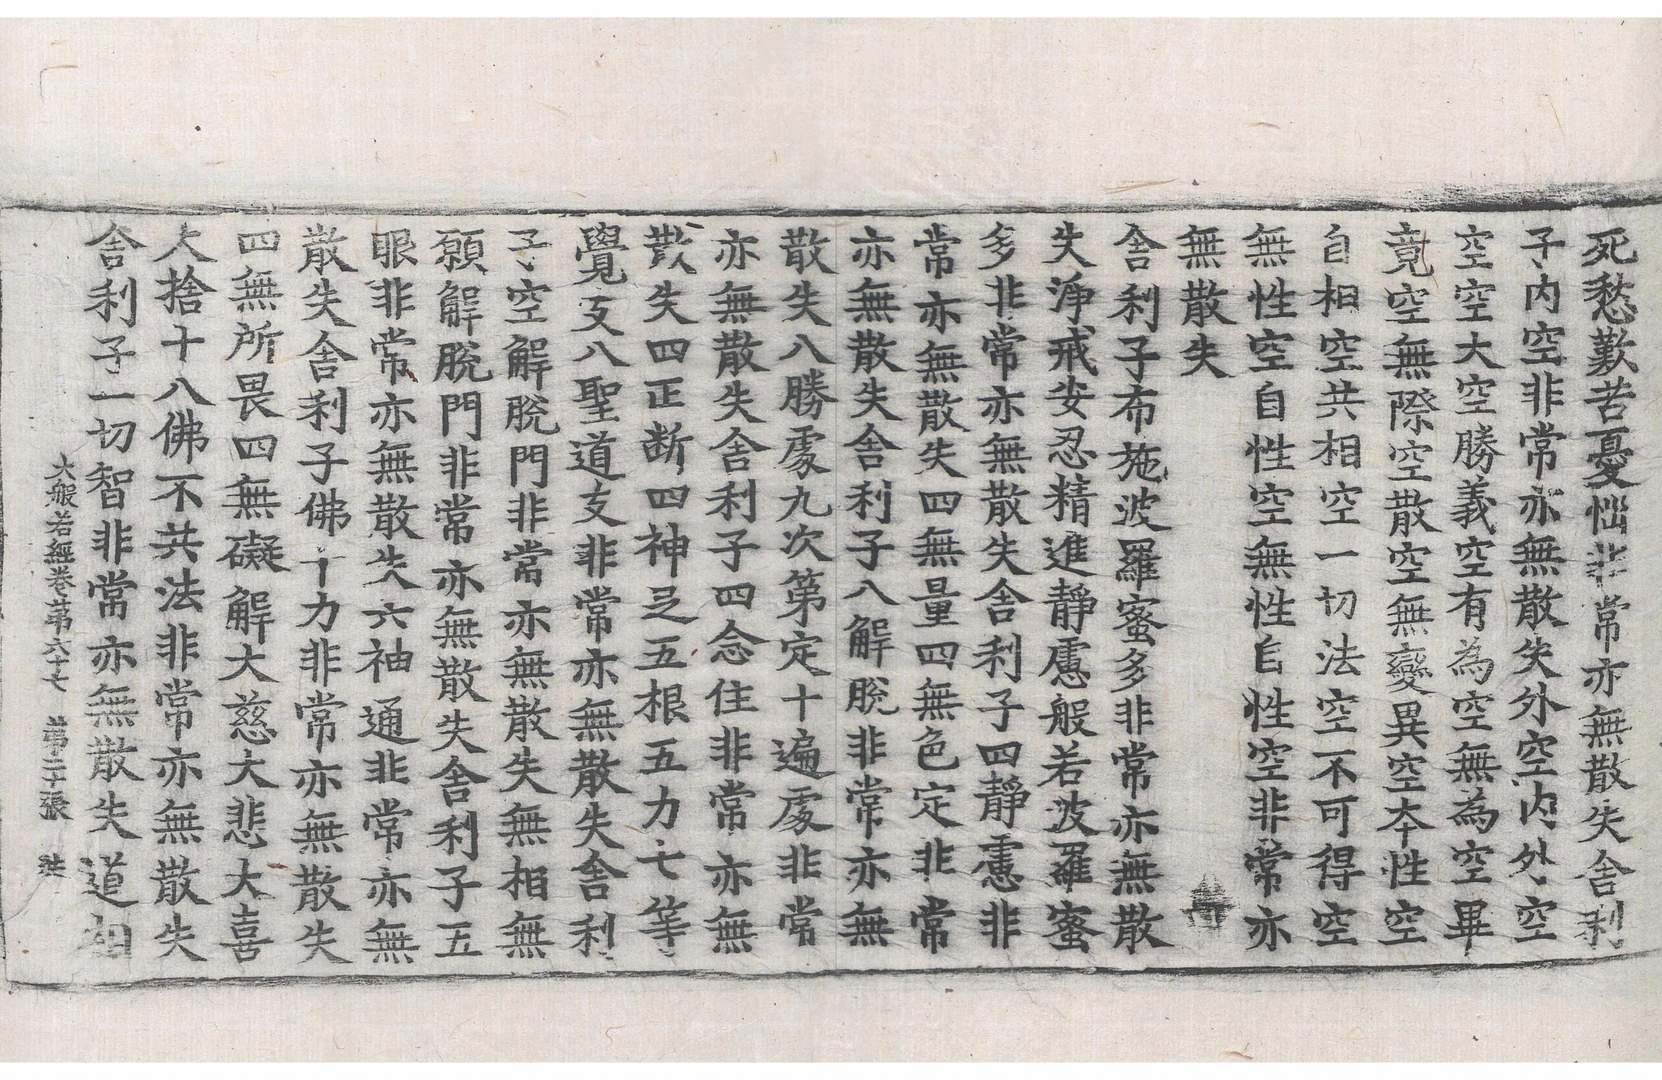 死愁歎苦憂惱非常亦無散失舍利
子內空非常亦無散失外空內外空
空空大空勝義空有為空無為空畢
竟空無際空散空無變異空本性空
自相空共相空一切法空不可得空
無性空自性空無性自性空非常亦
無散失
舍利子布施波羅蜜多非常亦無散
失淨戒安忍精進靜慮般若波羅蜜
多非常亦無散失舍利子四靜慮非
常亦無散失四無量四無色定非常
亦無散失舍利子八解脫非常亦無
散失八勝處九次第定十遍處非常
亦無散失舍利子四念住非常亦無
散失四正断四神足五根五力七等
覺支八聖道支非常亦無散失舍利
子空解脫門非常亦無散失無相無
願解脫門非常亦無散失舍利子五
眼非常亦無散失六神通非常亦無
散失舍利子佛十力非常亦無散失
四無所畏四無礙解大慈大悲大喜
大捨十八佛不共法非常亦無散失
舍利子一切智非常亦無散失道相
大般若經卷苐六十七 苐二十張